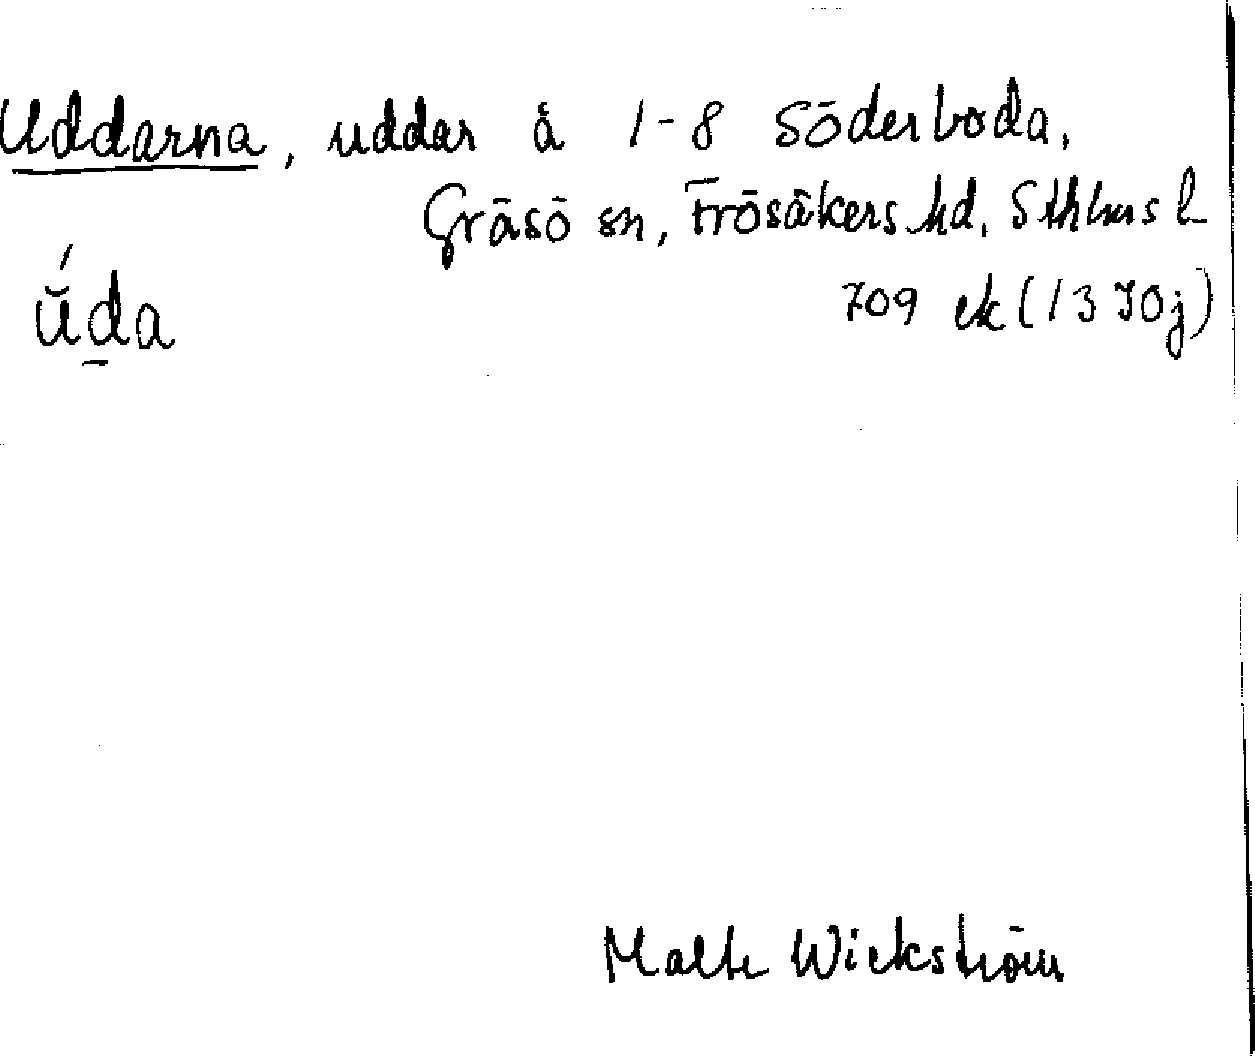 Uddarna, uddar å 1-8 Söderboda,
Gräsö sn, Frösåkers hd, Sthlms l
ŭ́d̲a
709 ek (13 I 0j)
Malte Wickström